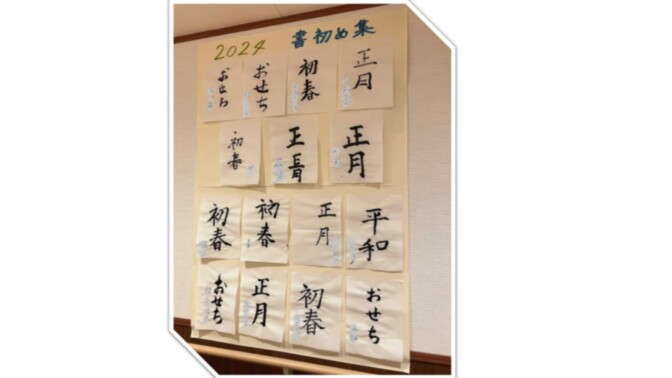 2024 書初め集
おせち
おせち
初春
正月
初春
正月
正月
初春
初春
正月
平和
おせち
正月
初春
おせち